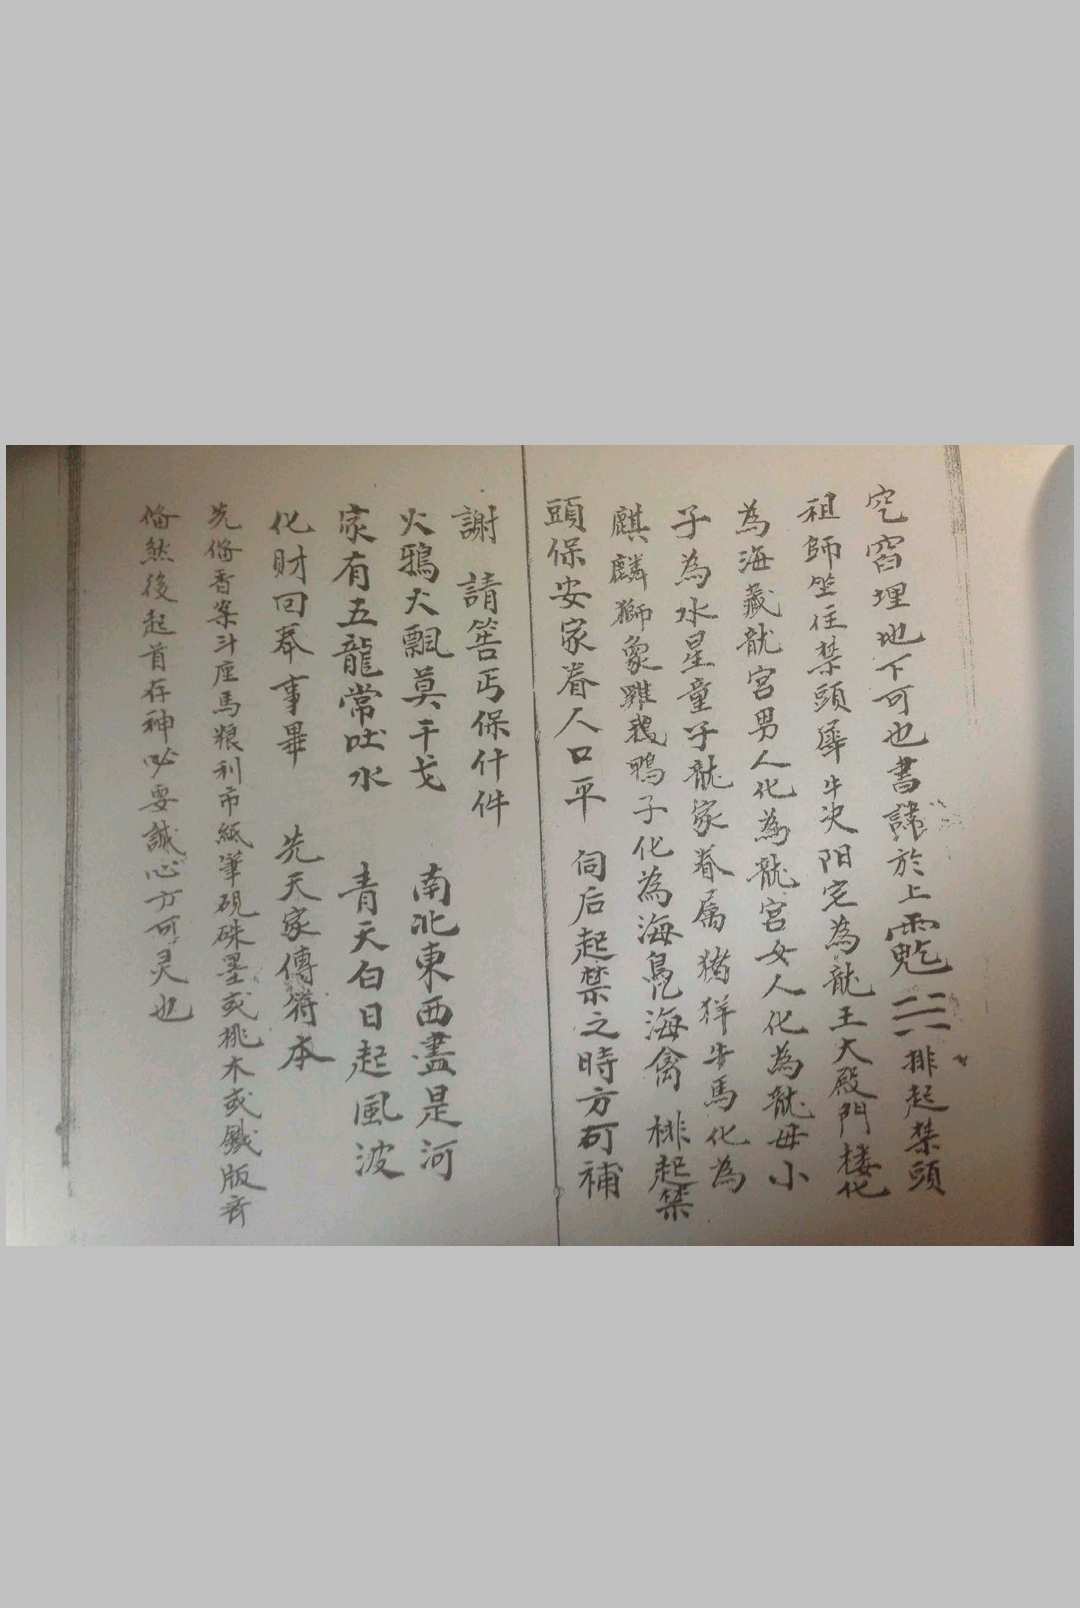 窀窞埋地下可也書諱於上 三 排起禁頭
祖師坐住禁頭犀牛決阳宅為龍王大殿門楼化
為海藏龍宮男人化為龍宮女人化為龍母小
子為水星童子龍家眷属猪羊牛馬化為
麒麟獅象雞鵝鴨子化為海鳥海禽排起禁
頭保安家眷人口平 伺后起禁之時方可補
謝 請筶丐保什件
火鴉火飄莫干戈 南北東西盡是河
家有五龍常吐水 青天白日起風波
化財回奉事畢 先天家傳符本
先俻香案斗座馬粮利市紙筆硯硃墨或桃木或鐵版斉
俻然後起首存神必要誠心方可灵也